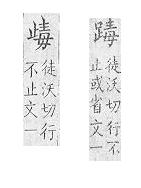 徒沃切行不
止或省文一
徒沃切行
不止文一